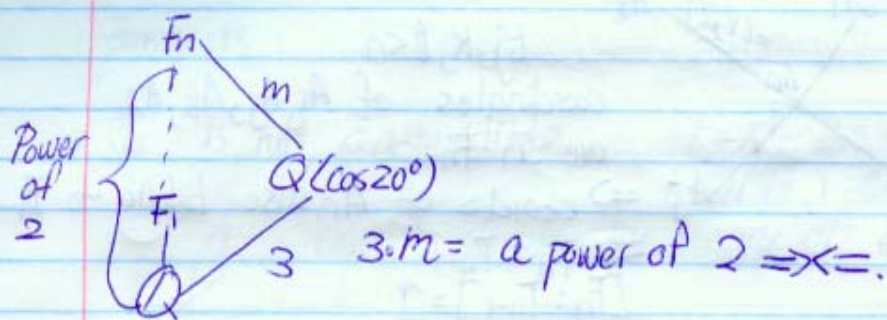 Fn
m
Power of 2
Q(cos20°)
F1
3
3·m = a power of 2 =>×<=.
Q